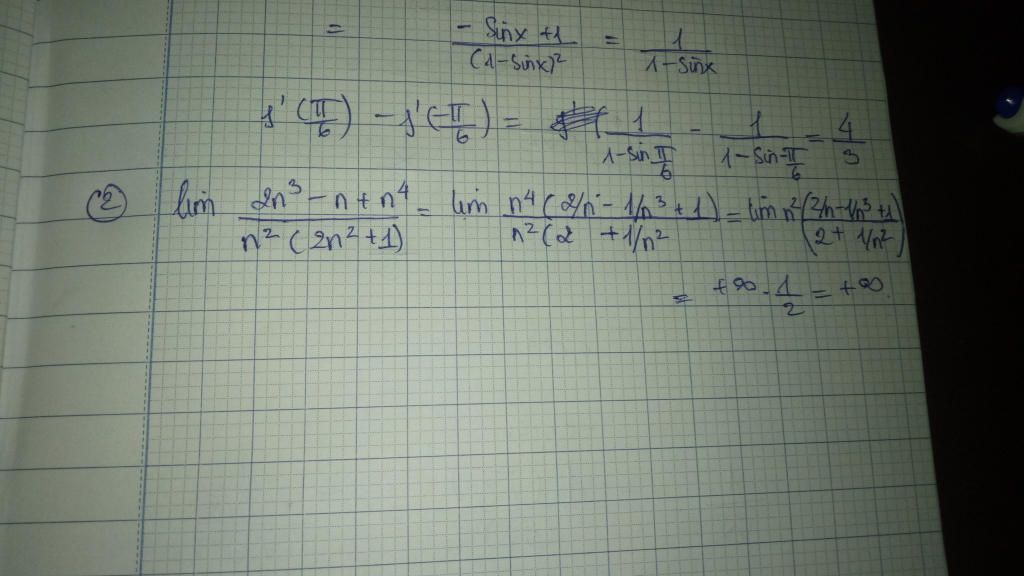 = (- sinx + 1)/((1 - sinx)²) = 1/(1 - sinx)
f'(π/6) - f'(-π/6) = 1/(1 - sin π/6) - 1/(1 - sin -π/6) = 4/3
② lim (2n³ - n + n⁴)/(n² (2n² + 1)) = lim (n⁴ (2/n - 1/n³ + 1))/(n² (2 + 1/n²) = lim n² (2/n - 1/n³ + 1)/(2 + 1/n²)
= +∞ · 1/2 = +∞.